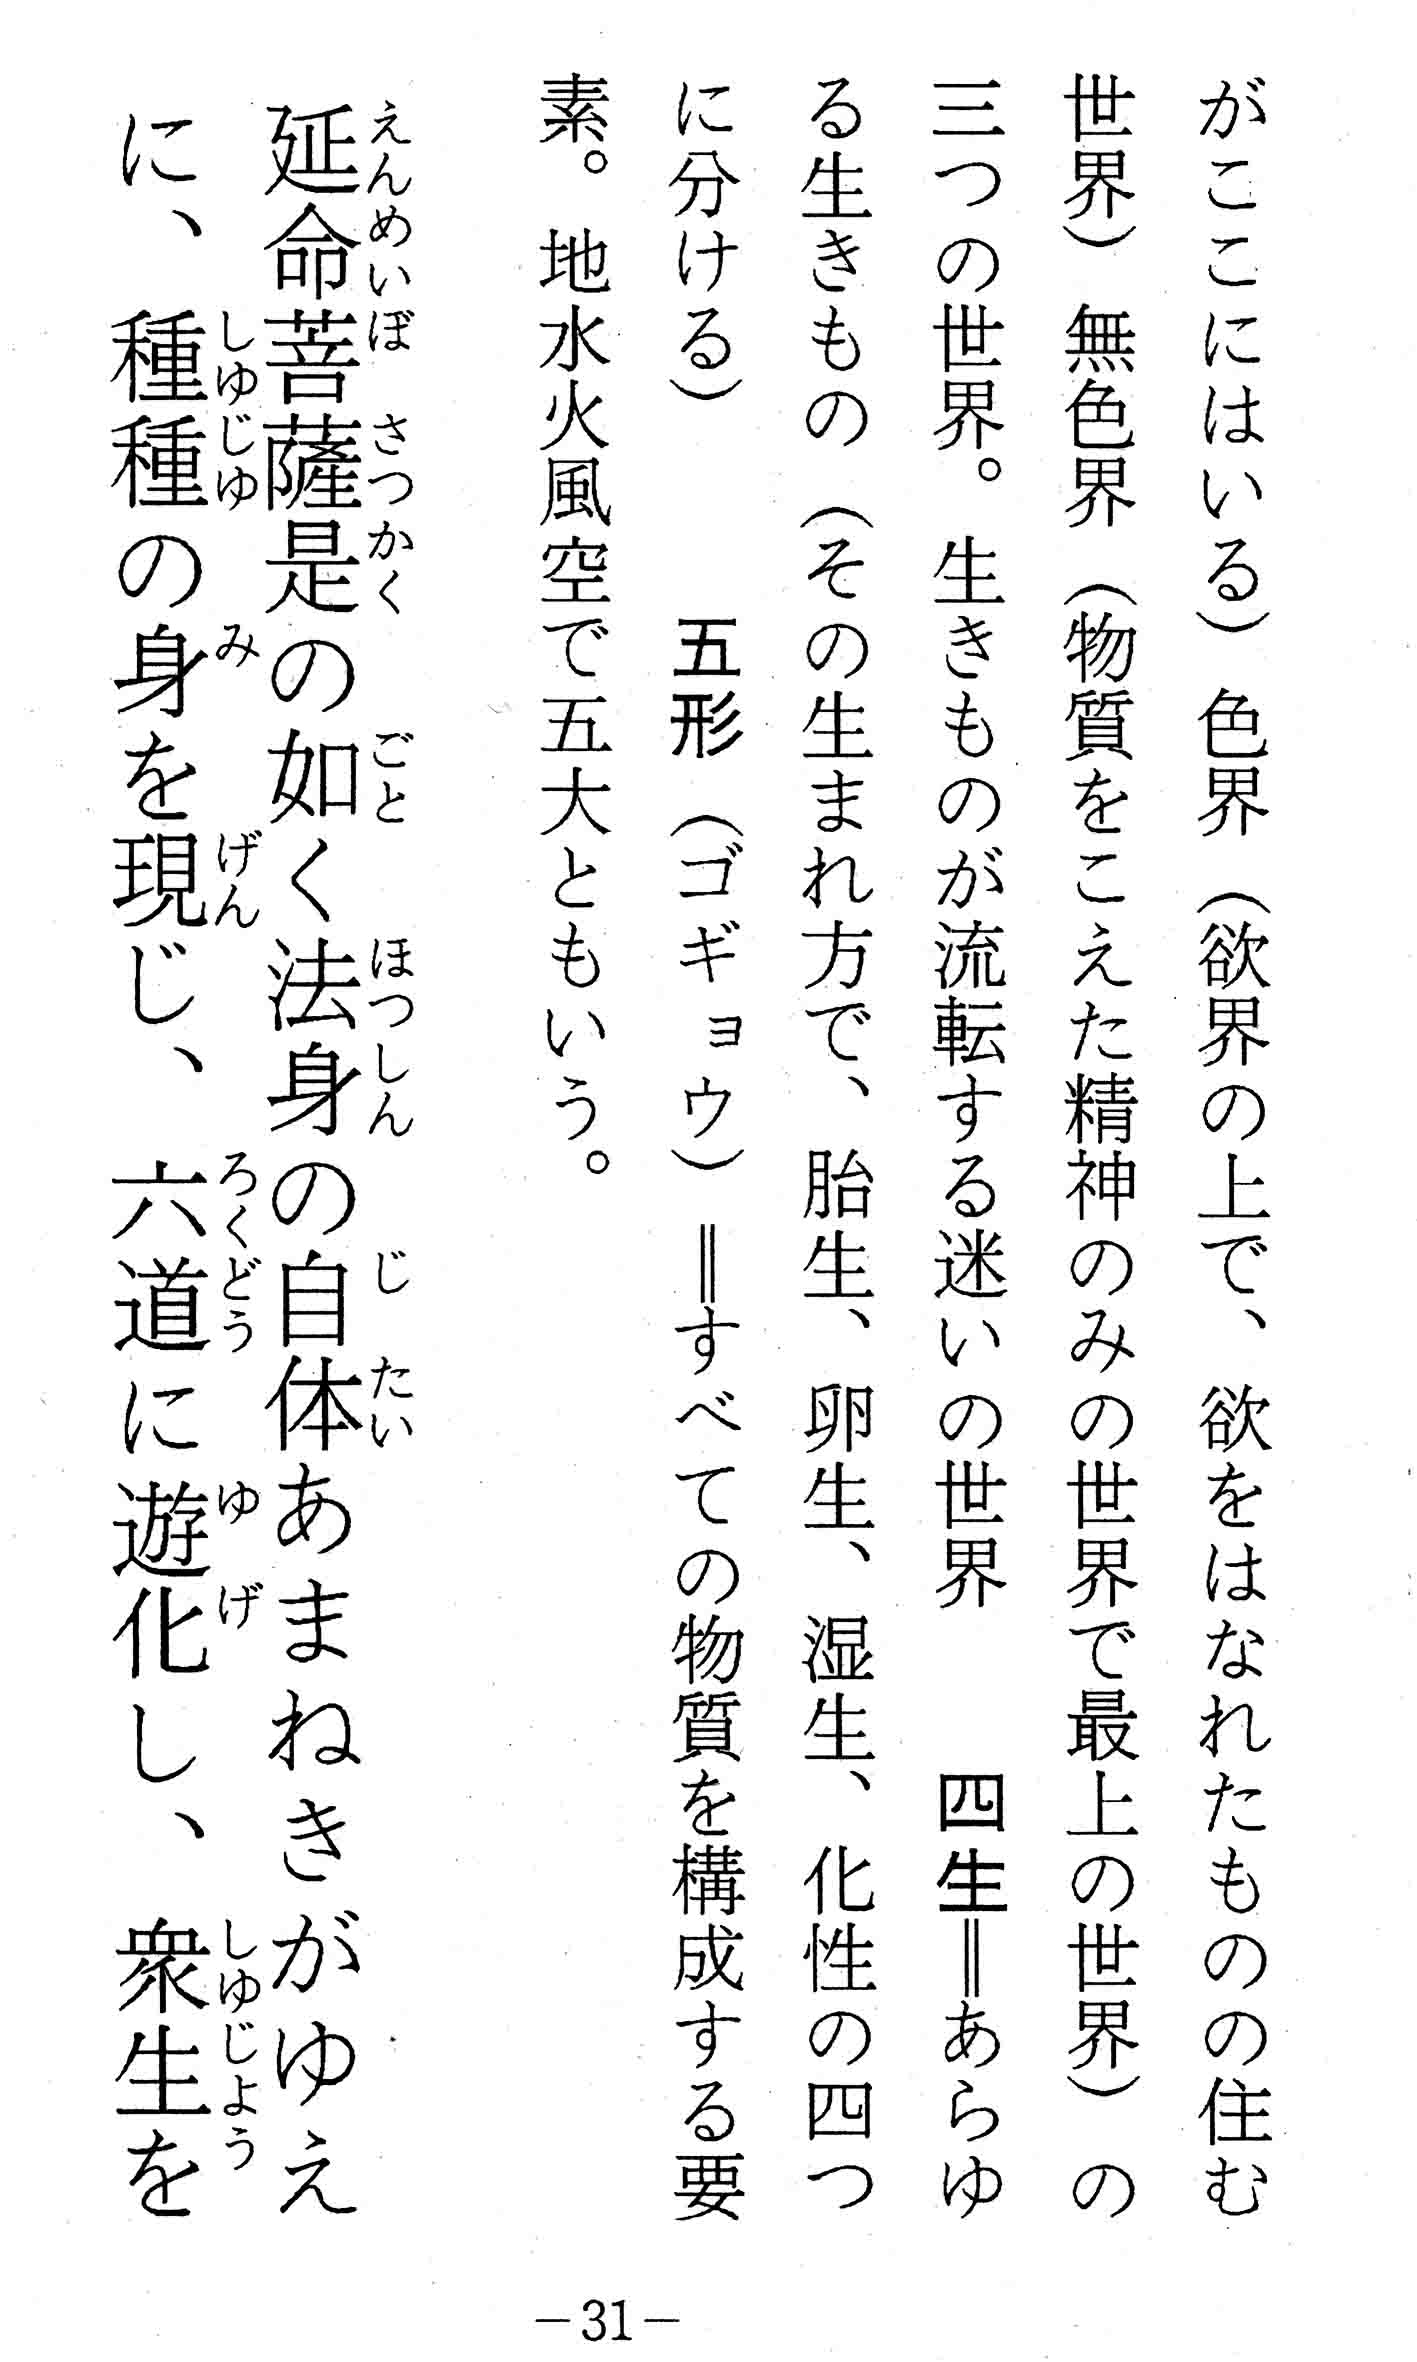 がここにはいる）色界（欲界の上で、欲をはなれたものの住む
世界）無色界（物質をこえた精神のみの世界で最上の世界）の
三つの世界。生きものが流転する迷いの世界　　四生＝あらゆ
る生きもの（その生まれ方で、胎生、卵生、湿生、化性の四つ
に分ける）　　五形（ゴギョウ）＝すべての物質を構成する要
素。地水火風空で五大ともいう。
えんめいぼさつかくごとほつしんじたい
延命菩薩是の如く法身の自体あまねきがゆえ
しゆじゆみげんろくどうゆげしゆじよう
に、種種の身を現じ、六道に遊化し、衆生を
－31－